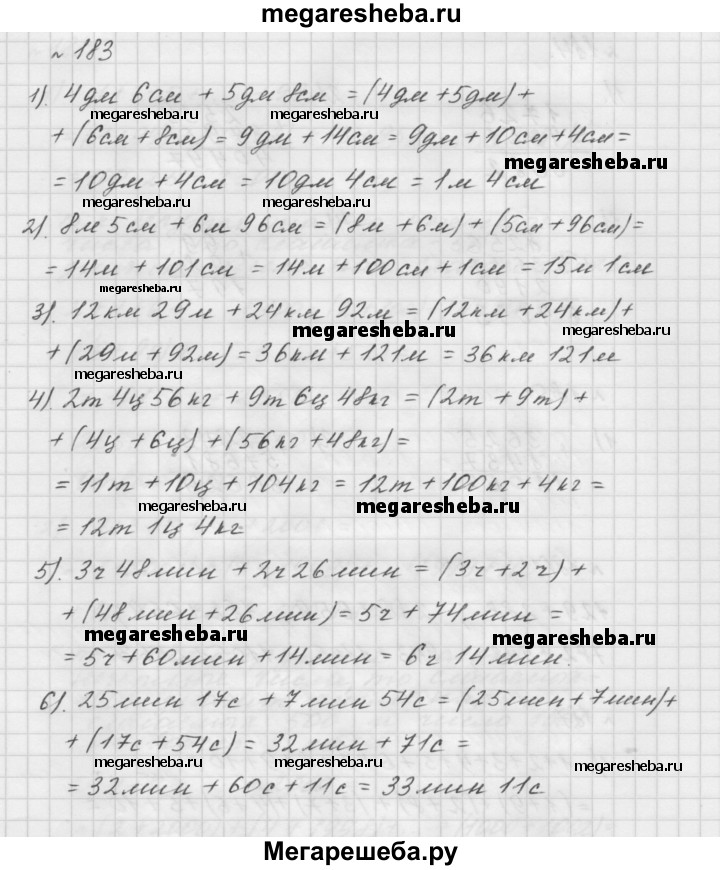 megaresheba.ru
№ 183
1). 4дм 6см + 5дм 8см = (4дм + 5дм) +
megaresheba.ru megaresheba.ru
+ (6см + 8см) = 9дм + 14см = 9дм + 10см + 4см =
megaresheba.ru
= 10дм + 4см = 10дм 4см = 1м 4см
megaresheba.ru megaresheba.ru
2). 8м 5см + 6м 96см = (8м + 6м) + (5см + 96см) =
= 14м + 101см = 14м + 100см + 1см = 15м 1см
megaresheba.ru
3). 12км 29м + 24км 92м = (12км + 24км) +
megaresheba.ru megaresheba.ru
+ (29м + 92м) = 36км + 121м = 36км 121м
megaresheba.ru
4). 2т 4ц 56кг + 9т 6ц 48кг = (2т + 9т) +
+ (4ц + 6ц) + (56кг + 48кг) =
= 11т + 10ц + 104кг = 12т + 100кг + 4кг =
megaresheba.ru megaresheba.ru
= 12т 1ц 4кг
5). 3ч 48мин + 2ч 26мин = (3ч + 2ч) +
+ (48мин + 26мин) = 5ч + 74мин =
megaresheba.ru megaresheba.ru
= 5ч + 60мин + 14мин = 6ч 14мин.
6). 25мин 17с + 7мин 54с = (25мин + 7мин) +
+ (17с + 54с) = 32мин + 71с =
megaresheba.ru megaresheba.ru
= 32мин + 60с + 11с = 33мин 11с
Мегарешеба.ру